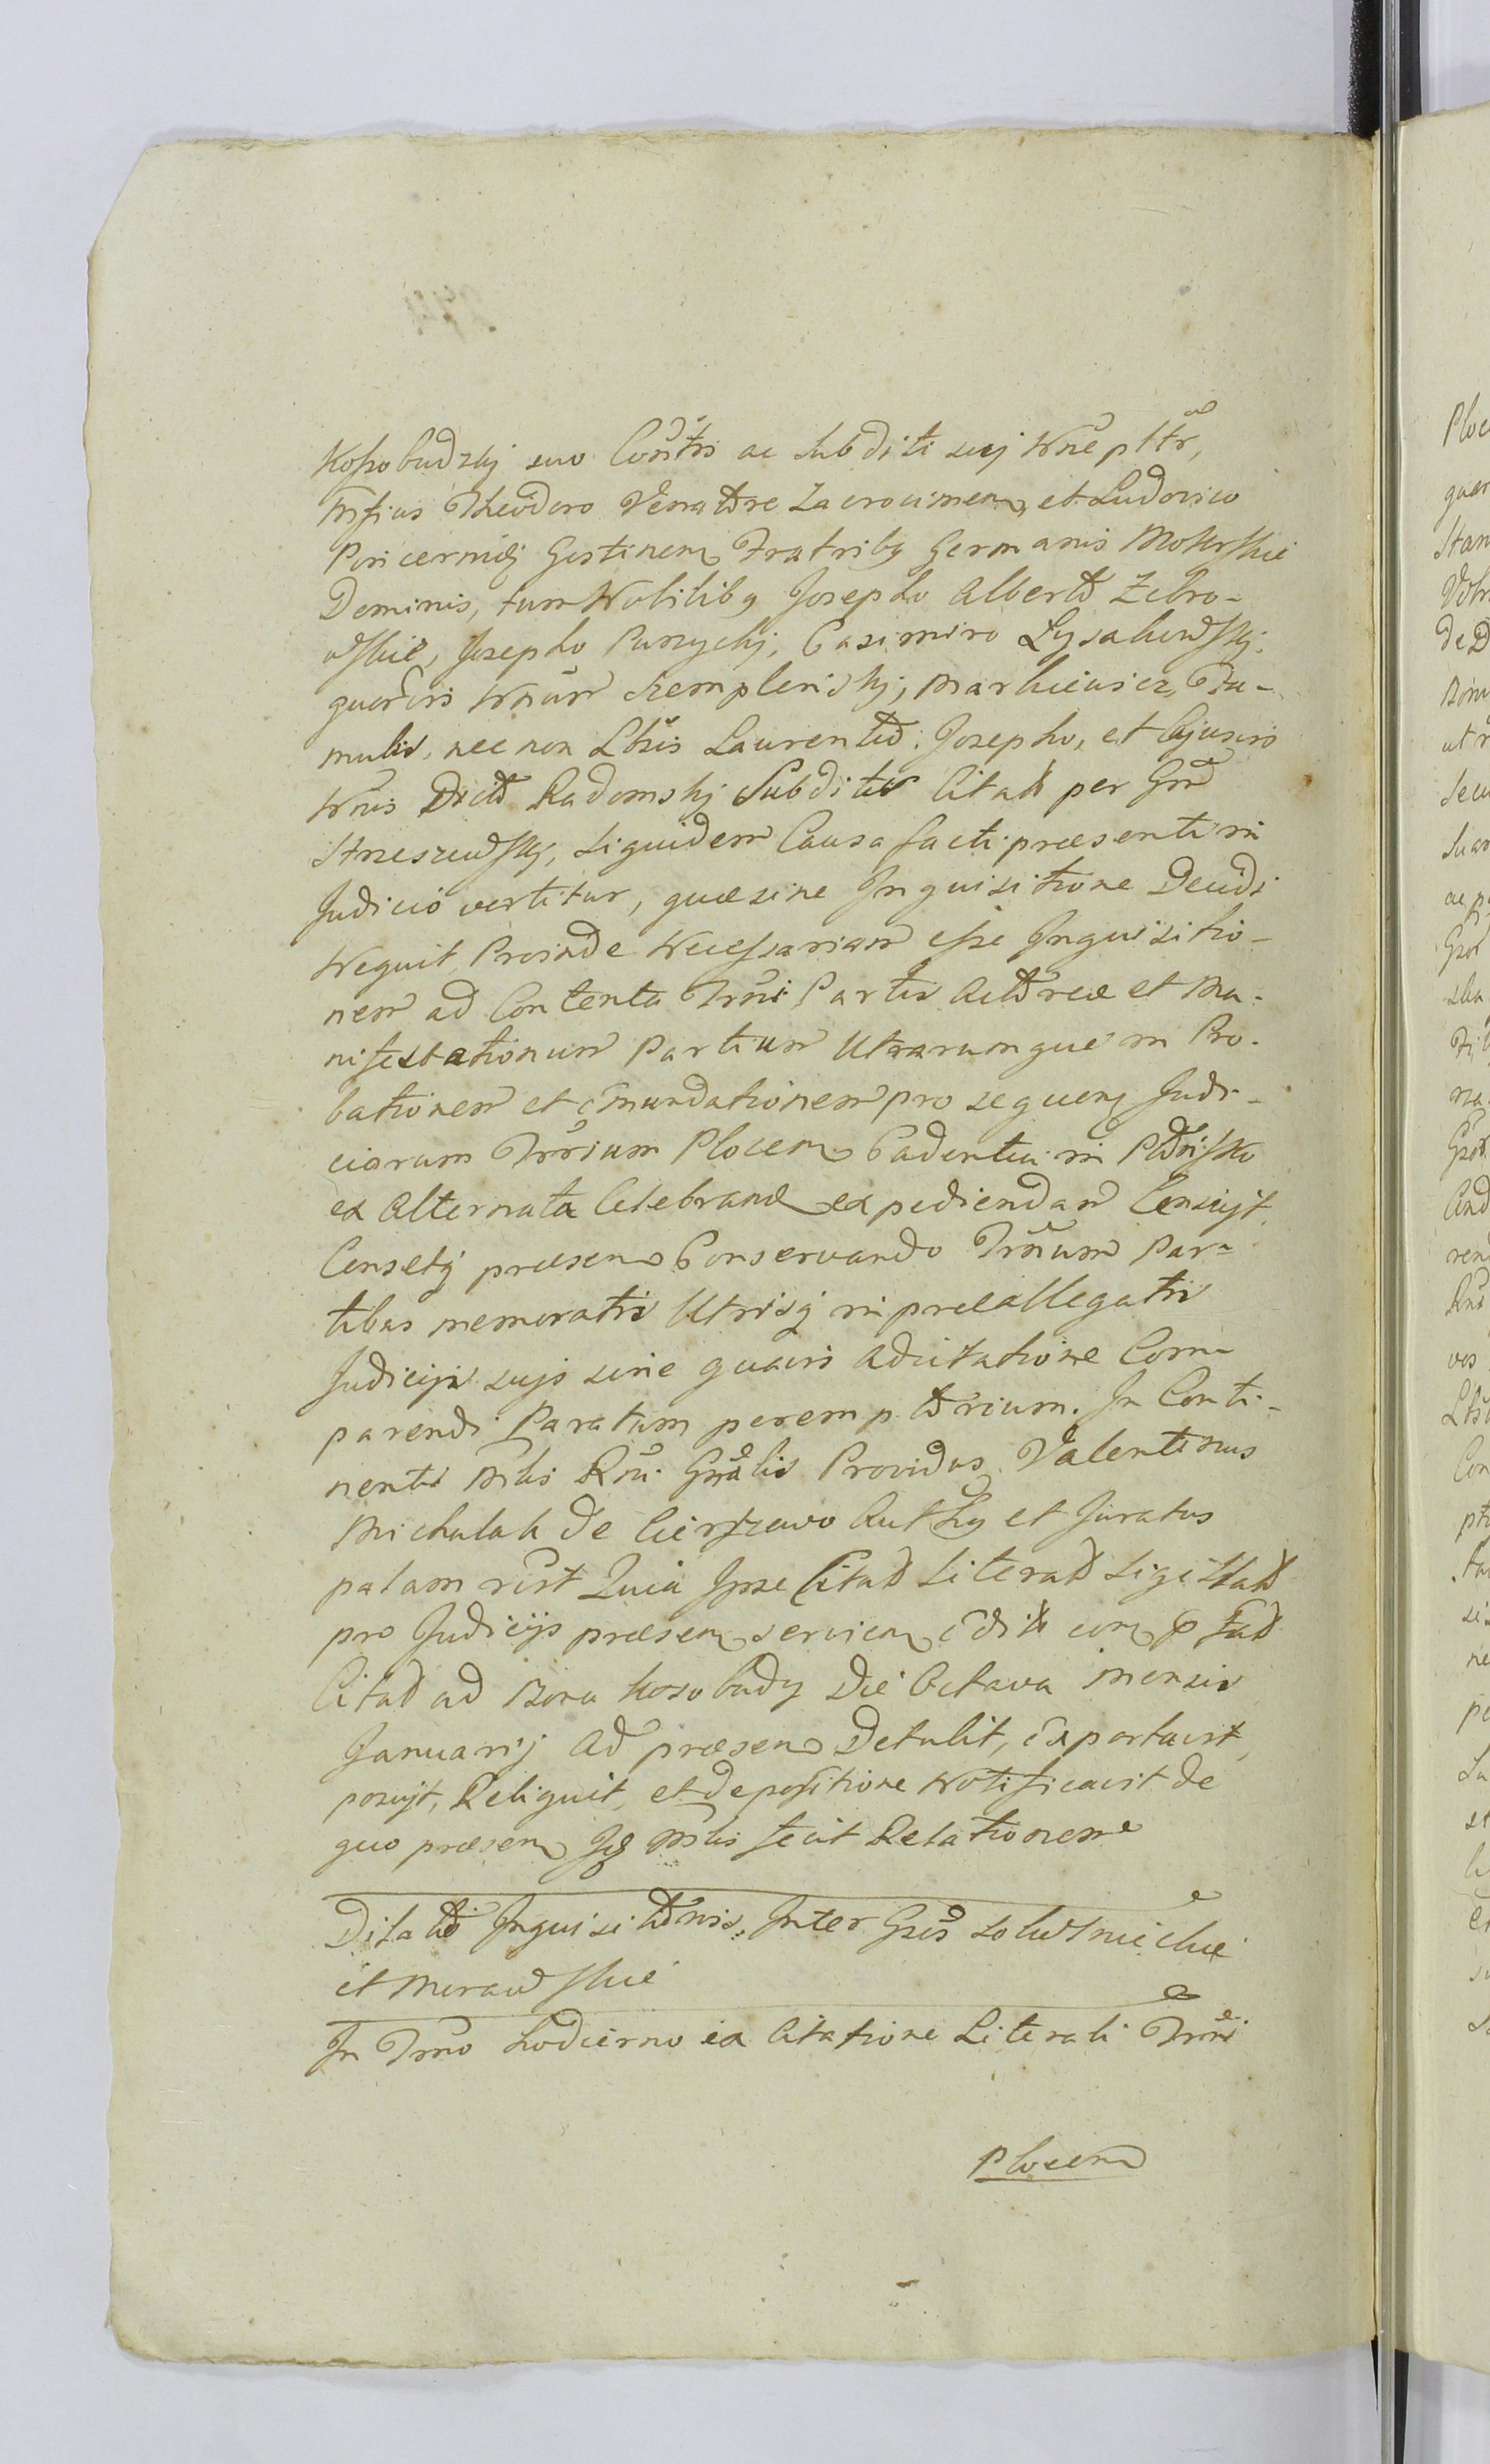 Kossobudzkj suo Cońtri ac Subditi suj Wnē pltr,
Mfius Theodoro Venatore Zacrocimen, et Ludovico
Poricernidj Gostinen, Fratribg Germanis Mokrskie
Dominis, tum Nobilibg Josepho Alberto Zebro-
wskie, Josepho Purzyckj, Casimiro Lysakowskj,
quorvis Wrum Szemplenskj, Markiewicz, Fa-
mulis, nec non Lbŭs Laurentio, Josepho, et Cujusvis
Wnis Dicto Radomskj Subditis Citatŧ per Gnd
Strzeszewskj, Siquidem Causa facti praesenti in
Judicio vertitur, quae sine Inquisitione Decidi
Nequit, Proinde Necessariam esse Inquisitio-
nem ad Contenta Trm̃i Partis Actoreae et Ma-
nifestationum Partium Utrarumque in Pro-
bationem et Emundationem pro sequenj Judi-
ciorum Trr̃ium Plocen, Cadentia in Płońsko
ex Alternata Celebrand expediendam Censujt,
Censetqj praesen, Conservando Trm̃um Par-
tibus memoratis Utrisqj in praeallegatis
Judicijs sujs sine quavis Adcitatione Com-
parendi Paratum peremptorium. In Conti-
nenti Mlis Rm̃i Gnălis Providus Valentinus
Michalak de Cierszewo Autħg et Juratus
palam rĕst Quia Ipse Citatŧ Literatŧ Sigillatŧ
pro Judicijs praesen, servien, Editŧ con, & tatŧ
Citatŧ ad Bona Kosobudy Die Octava mensis
Januarij Ad praesen Detulit, Exportavit,
posujt, Reliquit, et depositione Notificavit de
quo praesen, Idq Mlis fecit Relationem
Dilatŏ Inquisitionis, Inter Gsŏs Sokolnickie
et Morawskie
In Trm̃o hodierno ex Citatione Literali Trm̃i
Plocen